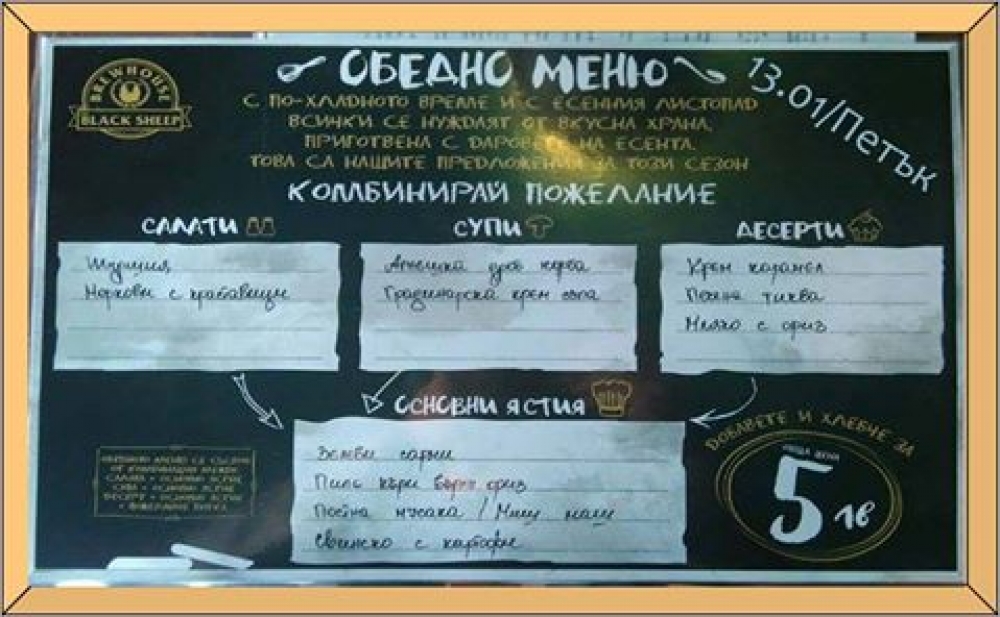 BREWHOUSE
BLACK SHEEP
ОБЕДНО МЕНЮ
13.01/Петък
С ПО-ХЛАДНОТО ВРЕМЕ И С ЕСЕННИЯ ЛИСТОПАД
ВСИЧКИ СЕ НУЖДАЯТ ОТ ВКУСНА ХРАНА,
ПРИГОТВЕНА С ДАРОВЕТЕ НА ЕСЕНТА.
ТОВА СА НАШИТЕ ПРЕДЛОЖЕНИЯ ЗА ТОЗИ СЕЗОН
КОМБИНИРАЙ ПОЖЕЛАНИЕ
САЛАТИ
Туршия
Моркови с крабавици
СУПИ
Агнешка дроб чорба
Градинарска крем супа
ДЕСЕРТИ
Крем карамел
Печена тиква
Мляко с ориз
ОСНОВНИ ЯСТИЯ
Зелеви сарми
Пиле къри ориз
Постна мусака / Миш маш
Свинско с картофи
ДОБАВЕТЕ И ХЛЕБЧЕ ЗА
ОБЩА ЦЕНА
5 лв